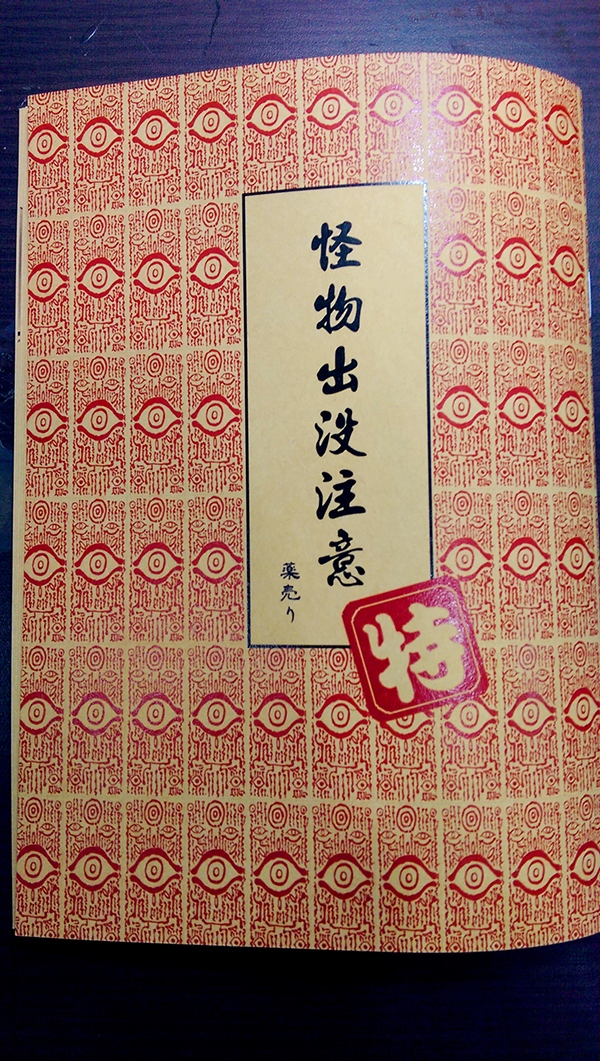 怪物出没注意
薬売り
特